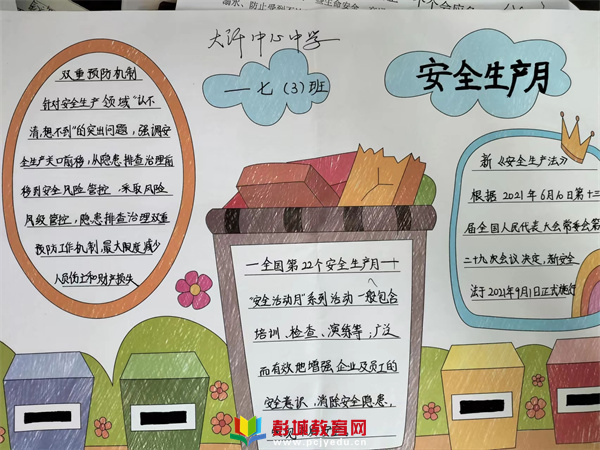 大许中心中学
一七（3）班
安全生产月
双重预防机制
针对安全生产领域“认不
清，想不到”的突出问题，强调安
全生产关口前移，从隐患排查治理前
移到安全风险管控，采取风险
风级管控，隐患排查治理双重
预防工作机制，最大限度减少
人员伤亡和财产损失
一全国第22个安全生产月一
“安全活动月”系列活动一般包含
培训、检查、演练等；广泛
而有效地增强企业及员工的
安全意识，消除安全隐患，
新《安全生产法》
根据2021年6月10日第十三
届全国人民代表大会常委会第
二十九次会议决定，新安全
法于2021年9月1日正式施行
彭城教育网
www.pcjyedu.cn